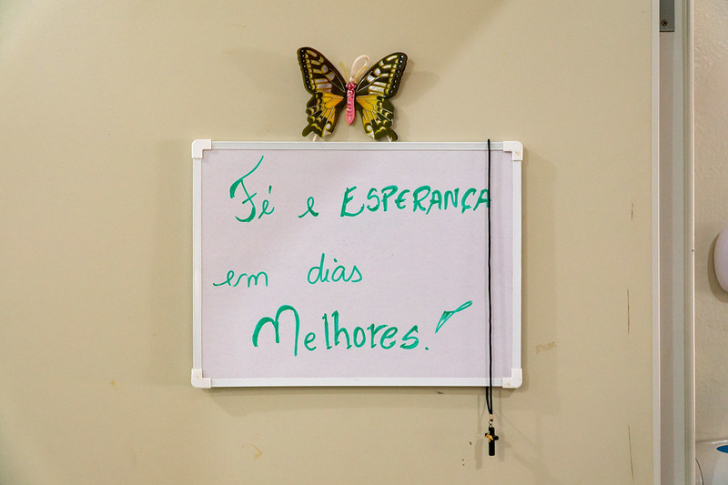 Fé e ESPERANÇA
em dias
Melhores.!